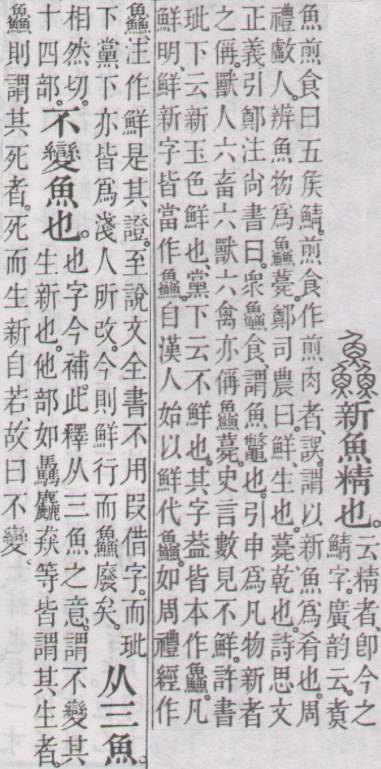 鱻新魚精也。
云精者、卽今之
鯖字。廣韵云。煑
魚煎食曰五矦鯖。煎食作煎肉者、誤。謂以新魚爲肴也。周
禮䱷人。辨魚物爲鱻薧。鄭司農曰。鮮、生也。薧、乾也。詩思文
正義引鄭注尙書曰。衆鱻食、謂魚鼈也。引申爲凡物新者
之偁。獸人六畜六獸六禽亦偁鱻薧。史言數見不鮮。許書
玼下云新玉色鮮也。黨下云不鮮也。其字葢皆本作鱻。凡
鮮明、鮮新字皆當作鱻。自漢人始以鮮代鱻。如周禮經作
鱻、注作鮮是其證。至說文全書不用叚借字。而玼
下、黨下亦皆爲淺人所改。今則鮮行而鱻廢矣。
从三魚。
相然切。
十四部。
不變魚也。
也字今補。此釋从三魚之意。謂不變其
生新也。他部如驫麤猋等皆謂其生者。
鱻則謂其死者。死而生新自若。故曰不變。